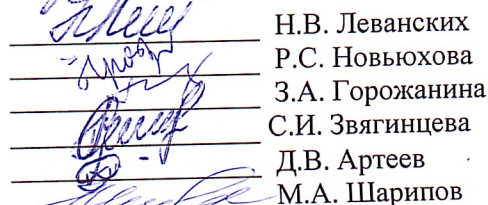 Н.В. Леванских
Р.С. Новьюхова
З.А. Горожанина
С.И. Звягинцева
Д.В. Артеев
М.А. Шарипов